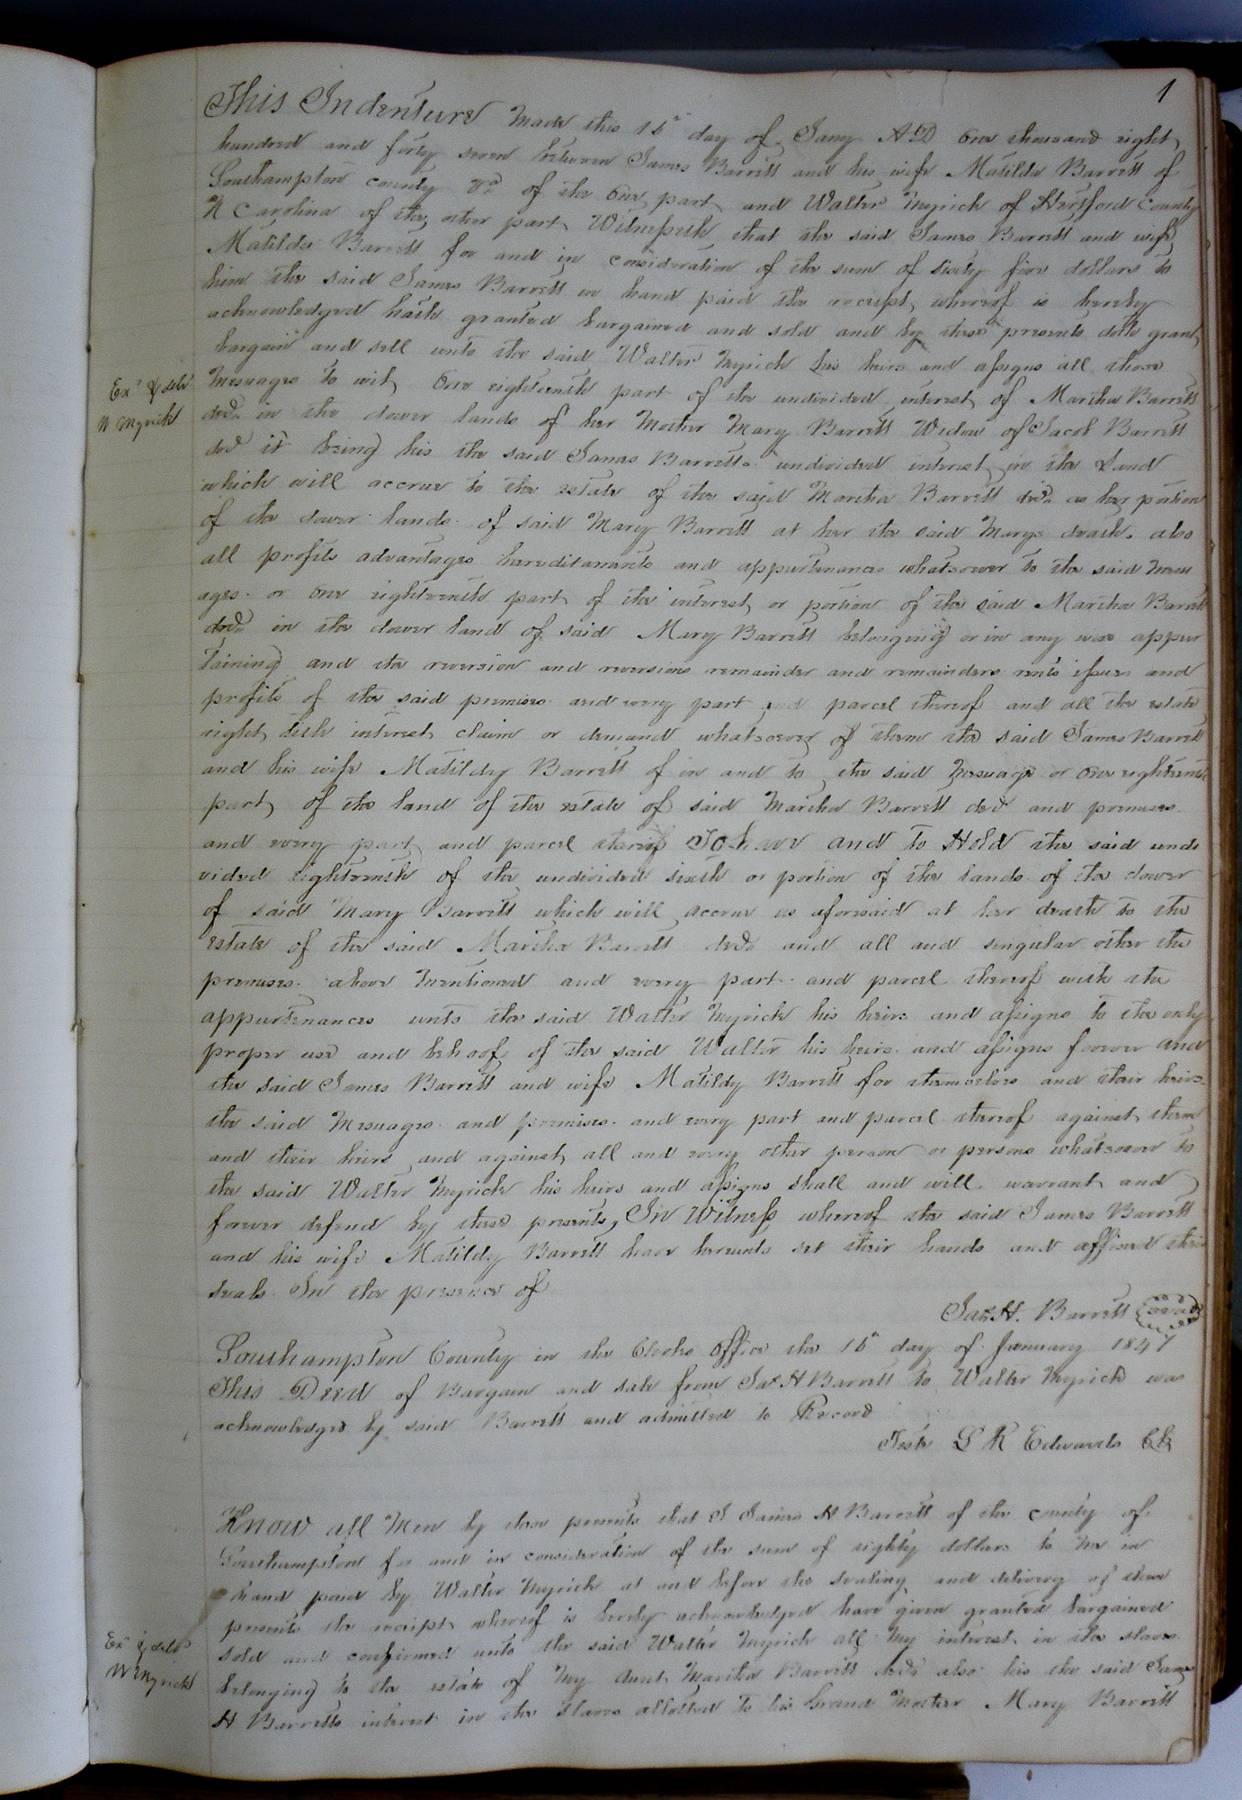 1
This Indenture Made this 15th day of Jany AD One thousand eight
hundred and forty seven between James Barrett and his wife Matilda Barrett of
Southampton county Va of the One part and Walter Myrick of Hertford County
N Carolina of the other part Witnesseth that the said James Barrett and wife
Matilda Barrett for and in consideration of the sum of Sixty five dollars to
him the said James Barrett in hand paid the receipt whereof is hereby
acknowledged hath granted bargained and sold and by these presents doth grant
bargain and sell unto the said Walter Myrick his heirs and assigns all those
Mesuages to wit, One eighteenth part of the undivided interest of Martha Barrett
decd. in the dower lands of her Mother Mary Barrett Widow of Jacob Barrett
decd it being his the said James Barretts undivided interest in the Land
which will accrue to the estate of the said Martha Barrett decd. as her portion
of the dower lands of said Mary Barrett at her the said Marys death. also
all profits advantages hereditaments and appurtenances whatsoever to the said mesu
ages or one eighteenth part of the interest or portion of the said Martha Barrett
decd. in the dower land of said Mary Barrett belonging or in any wise appur
taining and the reversion and reversions remainder and remainders rents issues and
profits of the said premises and every part and parcel thereof and all the estate
right title interest claim or demand whatsoever of them the said James Barrett
and his wife Matildy Barrett of in and to the said Mesuage or One eighteenth
part of the land of the estate of said Martha Barrett decd and premises
and every part and parcel thereof To have and to Hold the said undi
vided eighteenth of the undivided sixth or portion of the lands of the dower
of said Mary Barrett which will accrue as aforesaid at her death to the
estate of the said Martha Barrett decd and all and singular other the
premises above Mentioned and every part and parcel thereof with the
appurtenances unto the said Walter Myrick his heirs and assigns to the only
proper use and behoof of the said Walter his heirs and assigns forever and
the said James Barrett and wife Matildy Barrett for themselves and their heirs
the said Mesuages and premises and every part and parcel thereof against them
and their heirs and against all and every other person or persons whatsoever to
the said Walter Myrick his heirs and assigns shall and will warrant and
forever defend by these presents, In Witness whereof the said James Barrett
and his wife Matildy Barrett have hereunto set their hands and affixed their
seals In the presence of
Jas H. Barrett Seal
Southampton County in the Clerks Office the 15th day of January 1847
This Deed of Bargain and sale from Jas H Barrett to Walter Myrick was
acknowledged by said Barrett and admitted to Record
Teste L R Edwards Ck
Know all Men by these presents that I James H Barrett of the county of
Southampton for and in consideration of the sum of eighty dollars to me in
hand paid by Walter Myrick at and before the sealing and delivery of these
presents the receipt whereof is hereby acknowledged have given granted bargained
sold and confirmed unto the said Walter Myrick all my interest in the slaves
belonging to the estate of my Aunt Martha Barrett decd also his the said James
H Barretts interest in the slaves allotted to his Grand Mother Mary Barrett
Exd & deld
W Myrick
Exd & deld
W Myrick